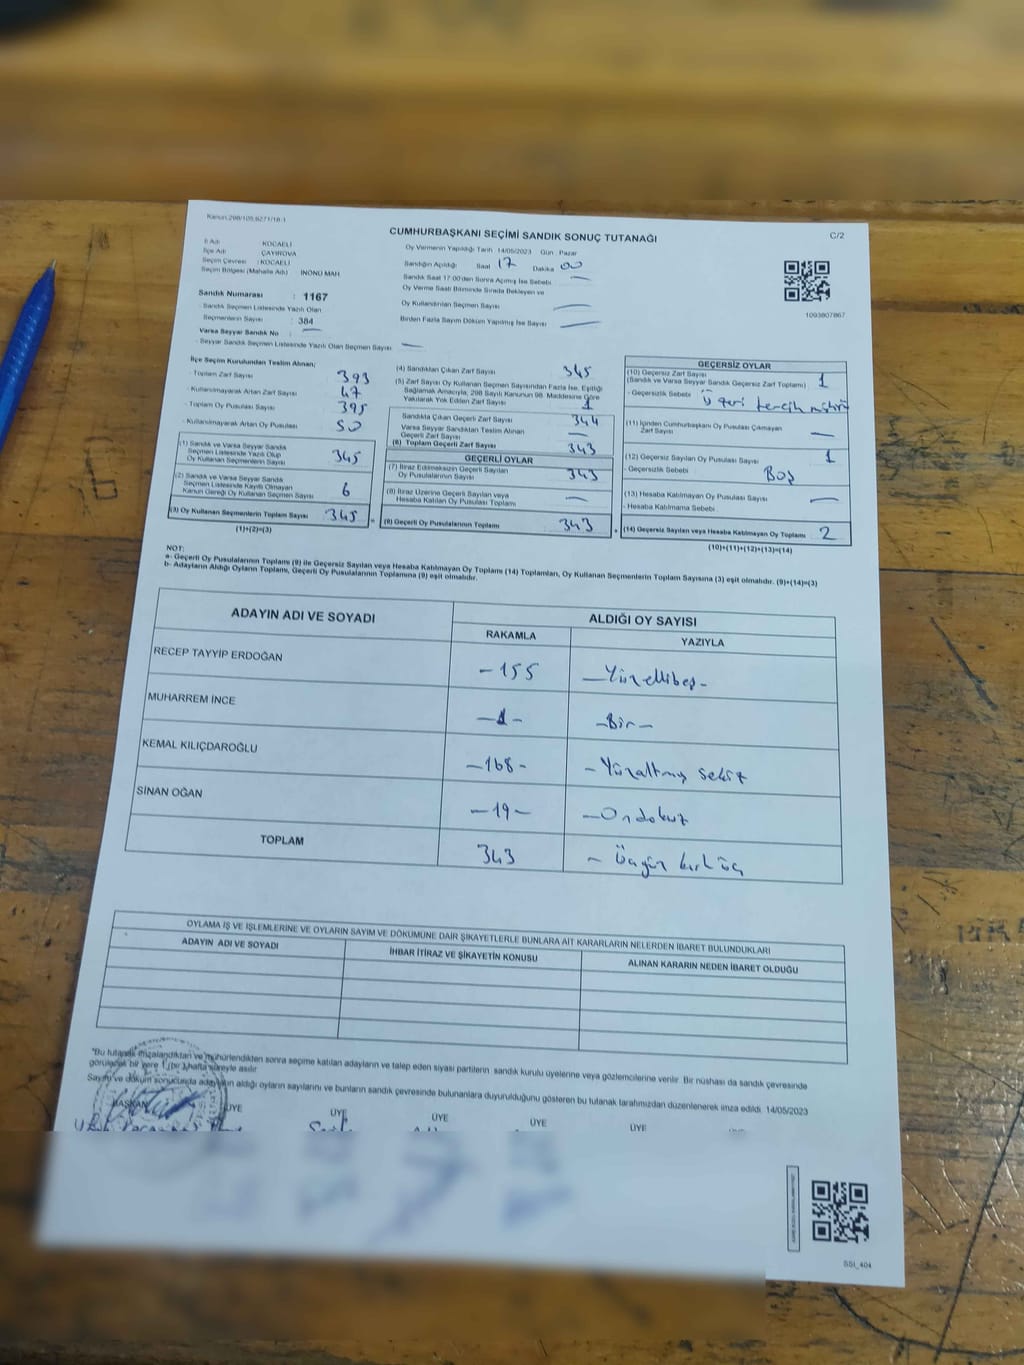 Kanun:298/105,6271/18-1
CUMHURBAŞKANI SEÇİMİ SANDIK SONUÇ TUTANAĞI
C/2
İl Adı : KOCAELİ
İlçe Adı : ÇAYIROVA
Seçim Çevresi : KOCAELİ
Seçim Bölgesi (Mahalle Adı) : İNÖNÜ MAH
Sandık Numarası : 1167
Sandık Seçmen Listesinde Yazılı Olan
Seçmenlerin Sayısı : 384
Varsa Seyyar Sandık No : —
- Seyyar Sandık Seçmen Listesinde Yazılı Olan Seçmen Sayısı —
Oy Vermenin Yapıldığı Tarih : 14/05/2023 Gün : Pazar
Sandığın Açıldığı Saat 17 Dakika 00
Sandık Saat 17:00'den Sonra Açılmış İse Sebebi —
Oy Verme Saati Bitiminde Sırada Bekleyen ve
Oy Kullandırılan Seçmen Sayısı —
Birden Fazla Sayım Döküm Yapılmış İse Sayısı —
1093807867
İlçe Seçim Kurulundan Teslim Alınan;
- Toplam Zarf Sayısı 393
- Kullanılmayarak Artan Zarf Sayısı 47
- Toplam Oy Pusulası Sayısı 395
- Kullanılmayarak Artan Oy Pusulası 50
(1) Sandık ve Varsa Seyyar Sandık
Seçmen Listesinde Yazılı Olup
Oy Kullanan Seçmenlerin Sayısı 345
(2) Sandık ve Varsa Seyyar Sandık
Seçmen Listesinde Kayıtlı Olmayan
Kanun Gereği Oy Kullanan Seçmen Sayısı 6
(3) Oy Kullanan Seçmenlerin Toplam Sayısı 345 =
(1)+(2)=(3)
(4) Sandıktan Çıkan Zarf Sayısı 345
(5) Zarf Sayısı Oy Kullanan Seçmen Sayısından Fazla İse, Eşitliği
Sağlamak Amacıyla, 298 Sayılı Kanunun 98. Maddesine Göre
Yakılarak Yok Edilen Zarf Sayısı 1
Sandıkta Çıkan Geçerli Zarf Sayısı 344
Varsa Seyyar Sandıktan Teslim Alınan
Geçerli Zarf Sayısı —
(6) Toplam Geçerli Zarf Sayısı 343
GEÇERLİ OYLAR
(7) İtiraz Edilmeksizin Geçerli Sayılan
Oy Pusulalarının Sayısı 343
(8) İtiraz Üzerine Geçerli Sayılan veya
Hesaba Katılan Oy Pusulası Toplamı —
(9) Geçerli Oy Pusulalarının Toplamı 343 +
GEÇERSİZ OYLAR
(10) Geçersiz Zarf Sayısı
(Sandık ve Varsa Seyyar Sandık Geçersiz Zarf Toplamı) 1
- Geçersizlik Sebebi tercih
(11) İçinden Cumhurbaşkanı Oy Pusulası Çıkmayan
Zarf Sayısı —
(12) Geçersiz Sayılan Oy Pusulası Sayısı 1
- Geçersizlik Sebebi Boş
(13) Hesaba Katılmayan Oy Pusulası Sayısı —
- Hesaba Katılmama Sebebi
(14) Geçersiz Sayılan veya Hesaba Katılmayan Oy Toplamı 2
(10)+(11)+(12)+(13)=(14)
NOT:
a- Geçerli Oy Pusulalarının Toplamı (9) ile Geçersiz Sayılan veya Hesaba Katılmayan Oy Toplamı (14) Toplamları, Oy Kullanan Seçmenlerin Toplam Sayısına (3) eşit olmalıdır. (9)+(14)=(3)
b- Adayların Aldığı Oyların Toplamı, Geçerli Oy Pusulalarının Toplamına (9) eşit olmalıdır.
ADAYIN ADI VE SOYADI
ALDIĞI OY SAYISI
RAKAMLA YAZIYLA
RECEP TAYYİP ERDOĞAN -155 -Yüzellibeş-
MUHARREM İNCE -1- -Bir-
KEMAL KILIÇDAROĞLU -168- -Yüzaltmış sekiz
SİNAN OĞAN -19- -Ondokuz
TOPLAM 343 - Üçyüz kırk üç
OYLAMA İŞ VE İŞLEMLERİNE VE OYLARIN SAYIM VE DÖKÜMÜNE DAİR ŞİKAYETLERLE BUNLARA AİT KARARLARIN NELERDEN İBARET BULUNDUKLARI
ADAYIN ADI VE SOYADI
İHBAR İTİRAZ VE ŞİKAYETİN KONUSU
ALINAN KARARIN NEDEN İBARET OLDUĞU
"Bu tutanak imzalandıktan ve mühürlendikten sonra seçime katılan adayların ve talep eden siyasi partilerin sandık kurulu üyelerine veya gözlemcilerine verilir. Bir nüshası da sandık çevresinde
görülecek bir yere 1 (bir) hafta süreyle asılır
Sayım ve döküm sonucunda adayların aldığı oyların sayılarını ve bunların sandık çevresinde bulunanlara duyurulduğunu gösteren bu tutanak tarafımızdan düzenlenerek imza edildi. 14/05/2023
BAŞKAN ÜYE ÜYE ÜYE ÜYE ÜYE
SSI_404